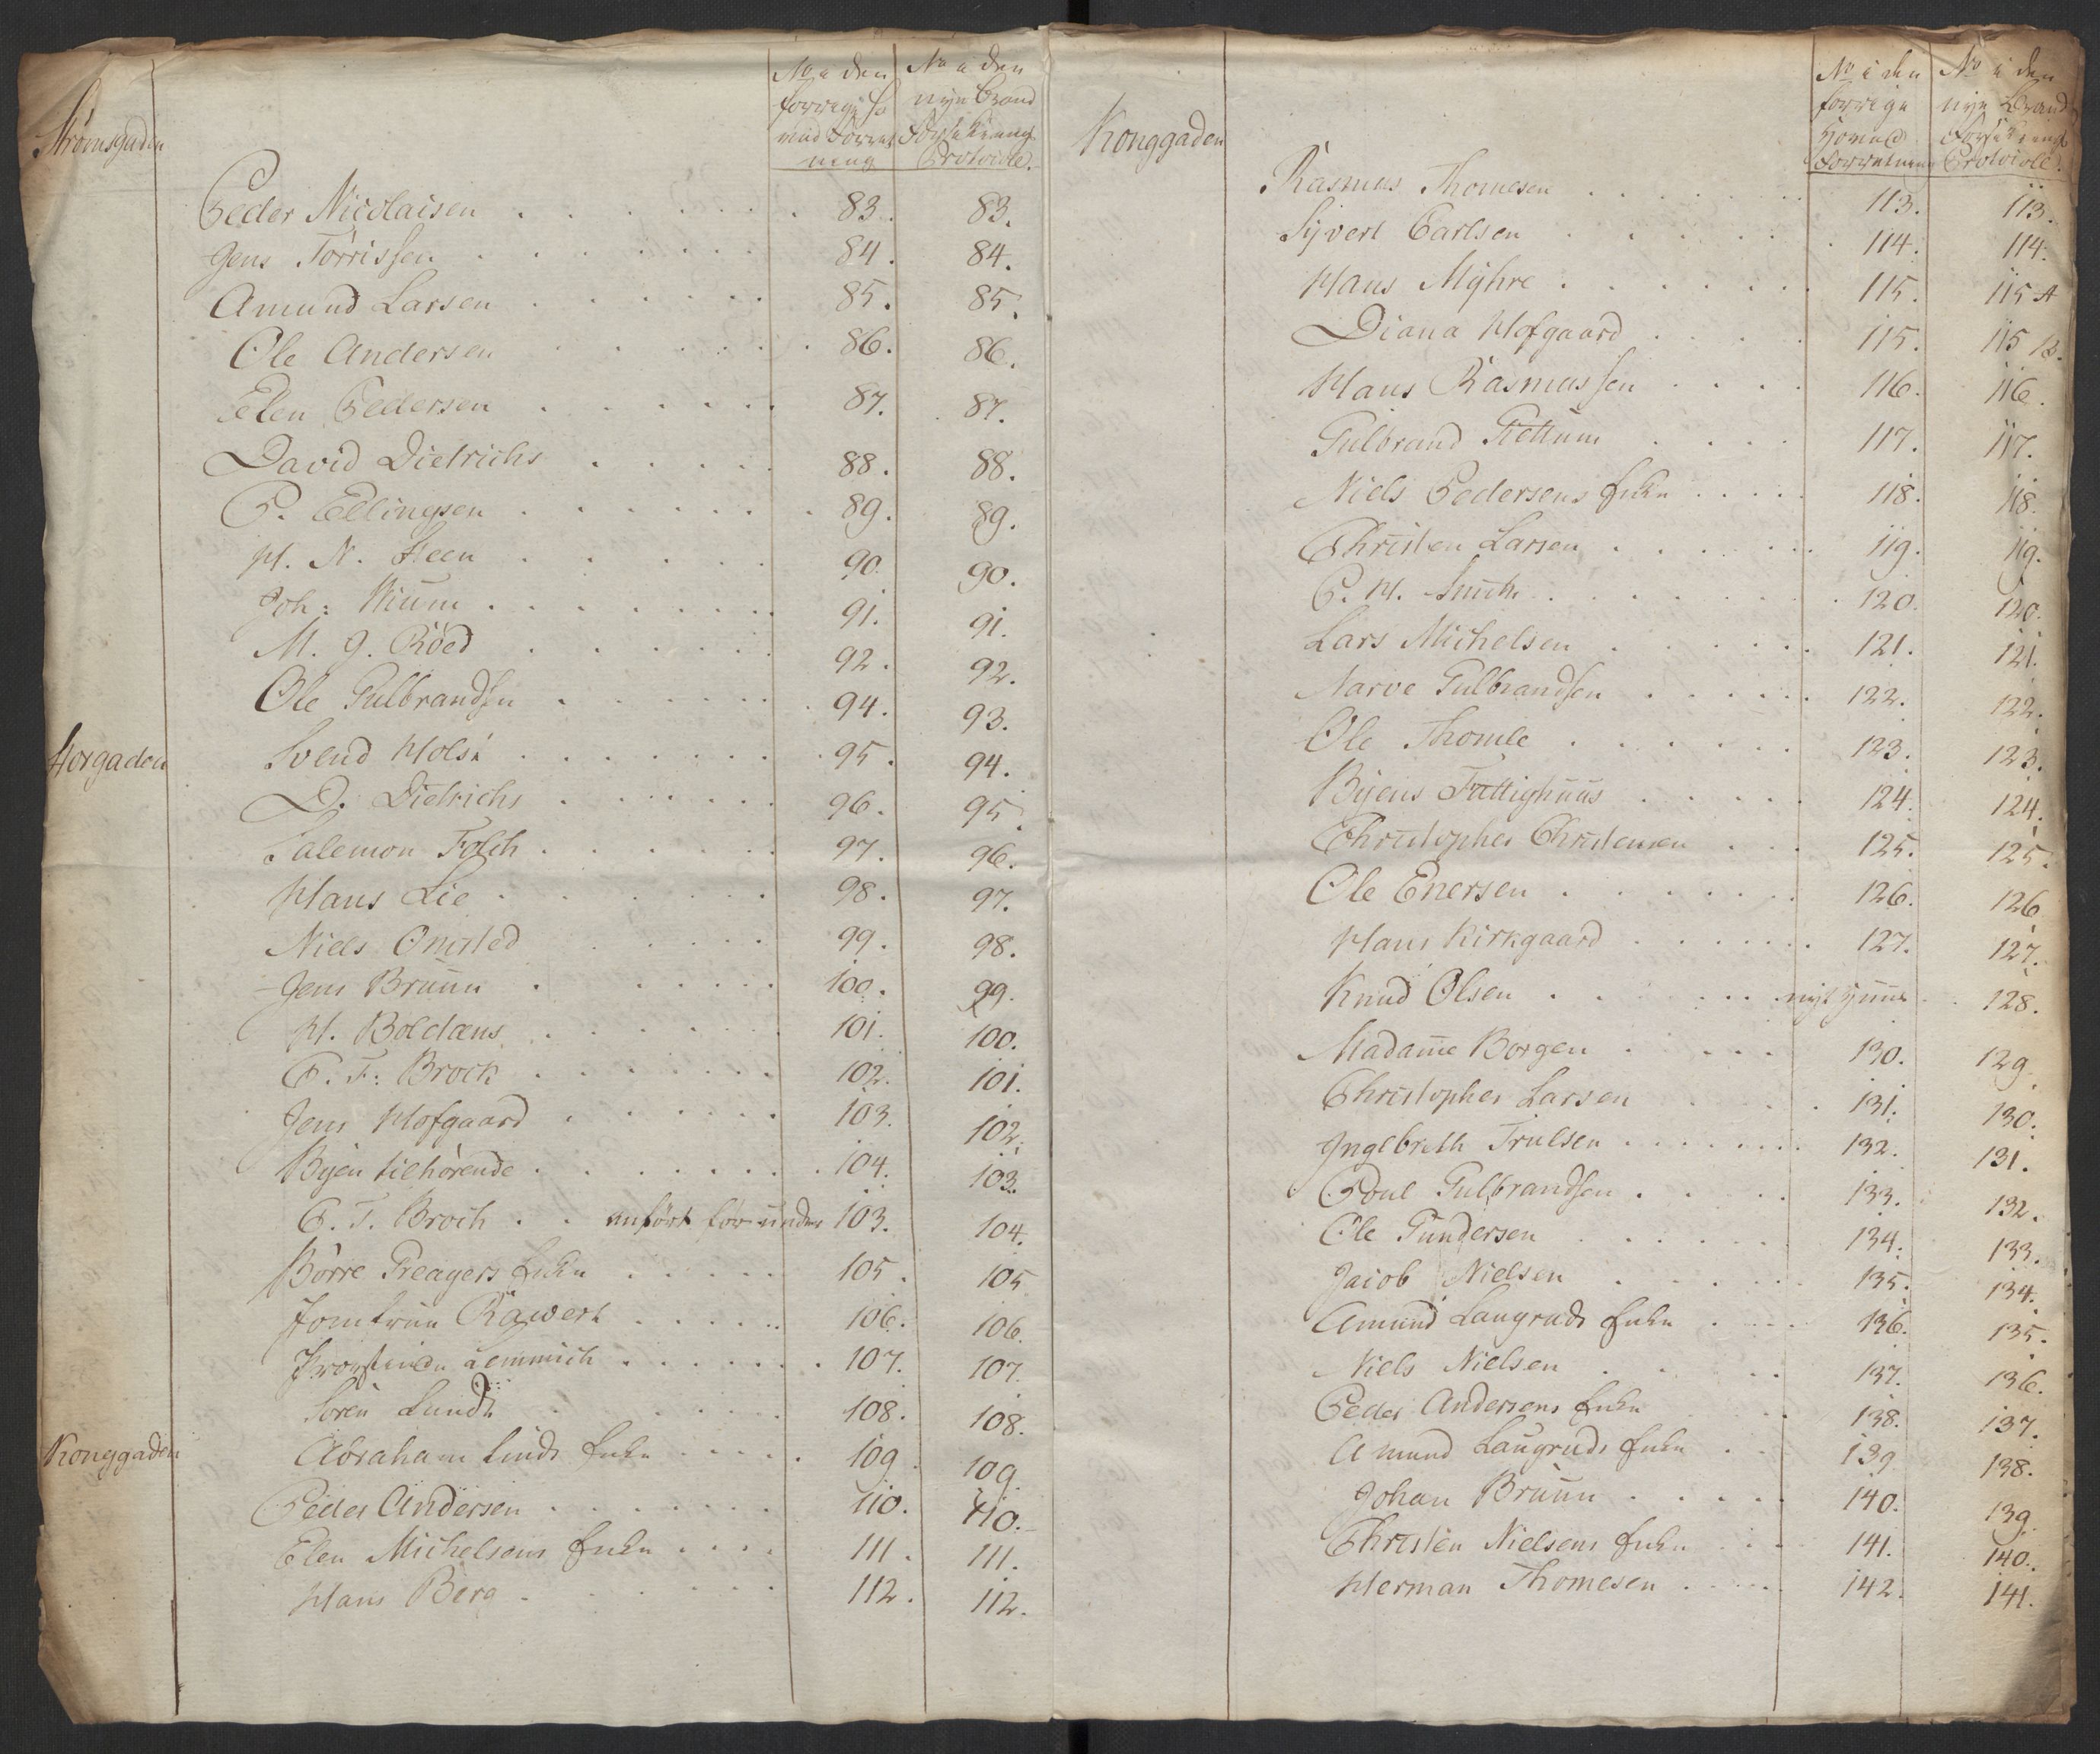 Strømsgaden
No i den No i den
forrige nye Brand
Forsikrings
ning Protocoll.
Peder Nicolaisen 83. 83.
Jens Torrissen 84. 84.
Amund Larsen 85. 85.
Ole Andersen 86. 86.
Elen Pedersen 87. 87.
David Dietrichs 88. 88.
P. Ellingsen 89. 89.
H. N. Steen 90. 90.
Joh: Wium 91. 91.
M. J. Röed 92. 92.
Ole Gulbrandsen 94. 93.
Storgaden Svend Holst 95. 94.
D. Dietrichs 96. 95.
Salemon Folch 97. 96.
Hans Lie 98. 97.
Niels Omsted 99. 98.
Jens Bruun 100. 99.
H. Boldæns 101. 100.
P. F: Brock 102. 101.
Jens Hofgaard 103. 102.
Byen tilhörende 104. 103.
P. T. Broch anfört før under 103. 104.
Börre Preagers Enke 105. 105
Jomfrue Rawert 106. 106.
Lemmich 107. 107.
Sören Lundt 108. 108.
Konggaden Abraham Linds Enke 109. 109.
Peder Andersen 110. 110.
Elen Michelsens Enke 111. 111.
Hans Berg 112. 112.
Konggaden
No i den No i den
forrige nye Brand
Hoved Forsikrings
Forretning Protocoll.
Rasmus Thomesen 113. 113.
Syvert Carlsen 114. 114.
Hans Myhre 115. 115 A
Diana Hofgaard 115. 115 B.
Hans Rasmussen 116. 116.
Gulbrand Tættum 117. 117.
Niels Pedersens Enke 118. 118.
Christen Larsen 119. 119.
P. H. Smith 120. 120.
Lars Michelsen 121. 121.
Narve Gulbrandsen 122. 122.
Ole Thomle 123. 123.
Byens Fattighuus 124. 124.
Christopher Christensen 125. 125.
Ole Enersen 126. 126
Hans Kirkgaard 127. 127.
Knud Olsen nyt Huus 128.
Madame Borgen 130. 129.
Christopher Larsen 131. 130.
Inglbreth Trulsen 132. 131.
Poul Gulbrandsen 133. 132.
Ole Gundersen 134. 133.
Jacob Nielsen 135. 134.
Amund Laugruds Enke 136. 135.
Niels Nielsen 137. 136.
Peder Andersens Enke 138. 137.
Amund Laugruds Enke 139 138.
Johan Bruun 140. 139.
Christen Nielsens Enke 141. 140.
Herman Thomesen 142. 141.